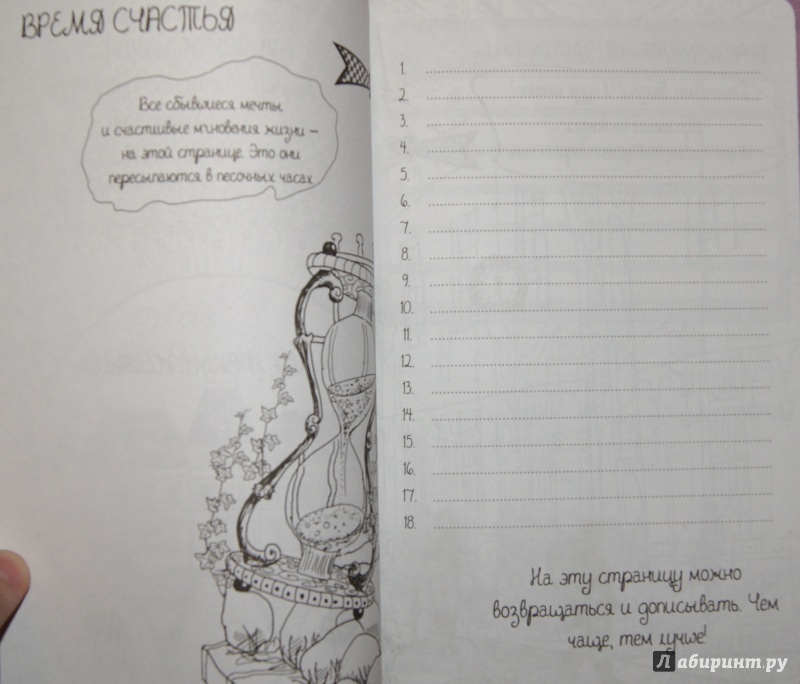 ВРЕМЯ СЧАСТЬЯ
Все сбывшиеся мечты
и счастливые мгновения жизни –
на этой странице. Это они
пересыпаются в песочных часах
1.
2.
3.
4.
5.
6.
7.
8.
9.
10.
11.
12.
13.
14.
15.
16.
17.
18.
На эту страницу можно
возвращаться и дописывать. Чем
чаще, тем лучше!
Лабиринт.ру